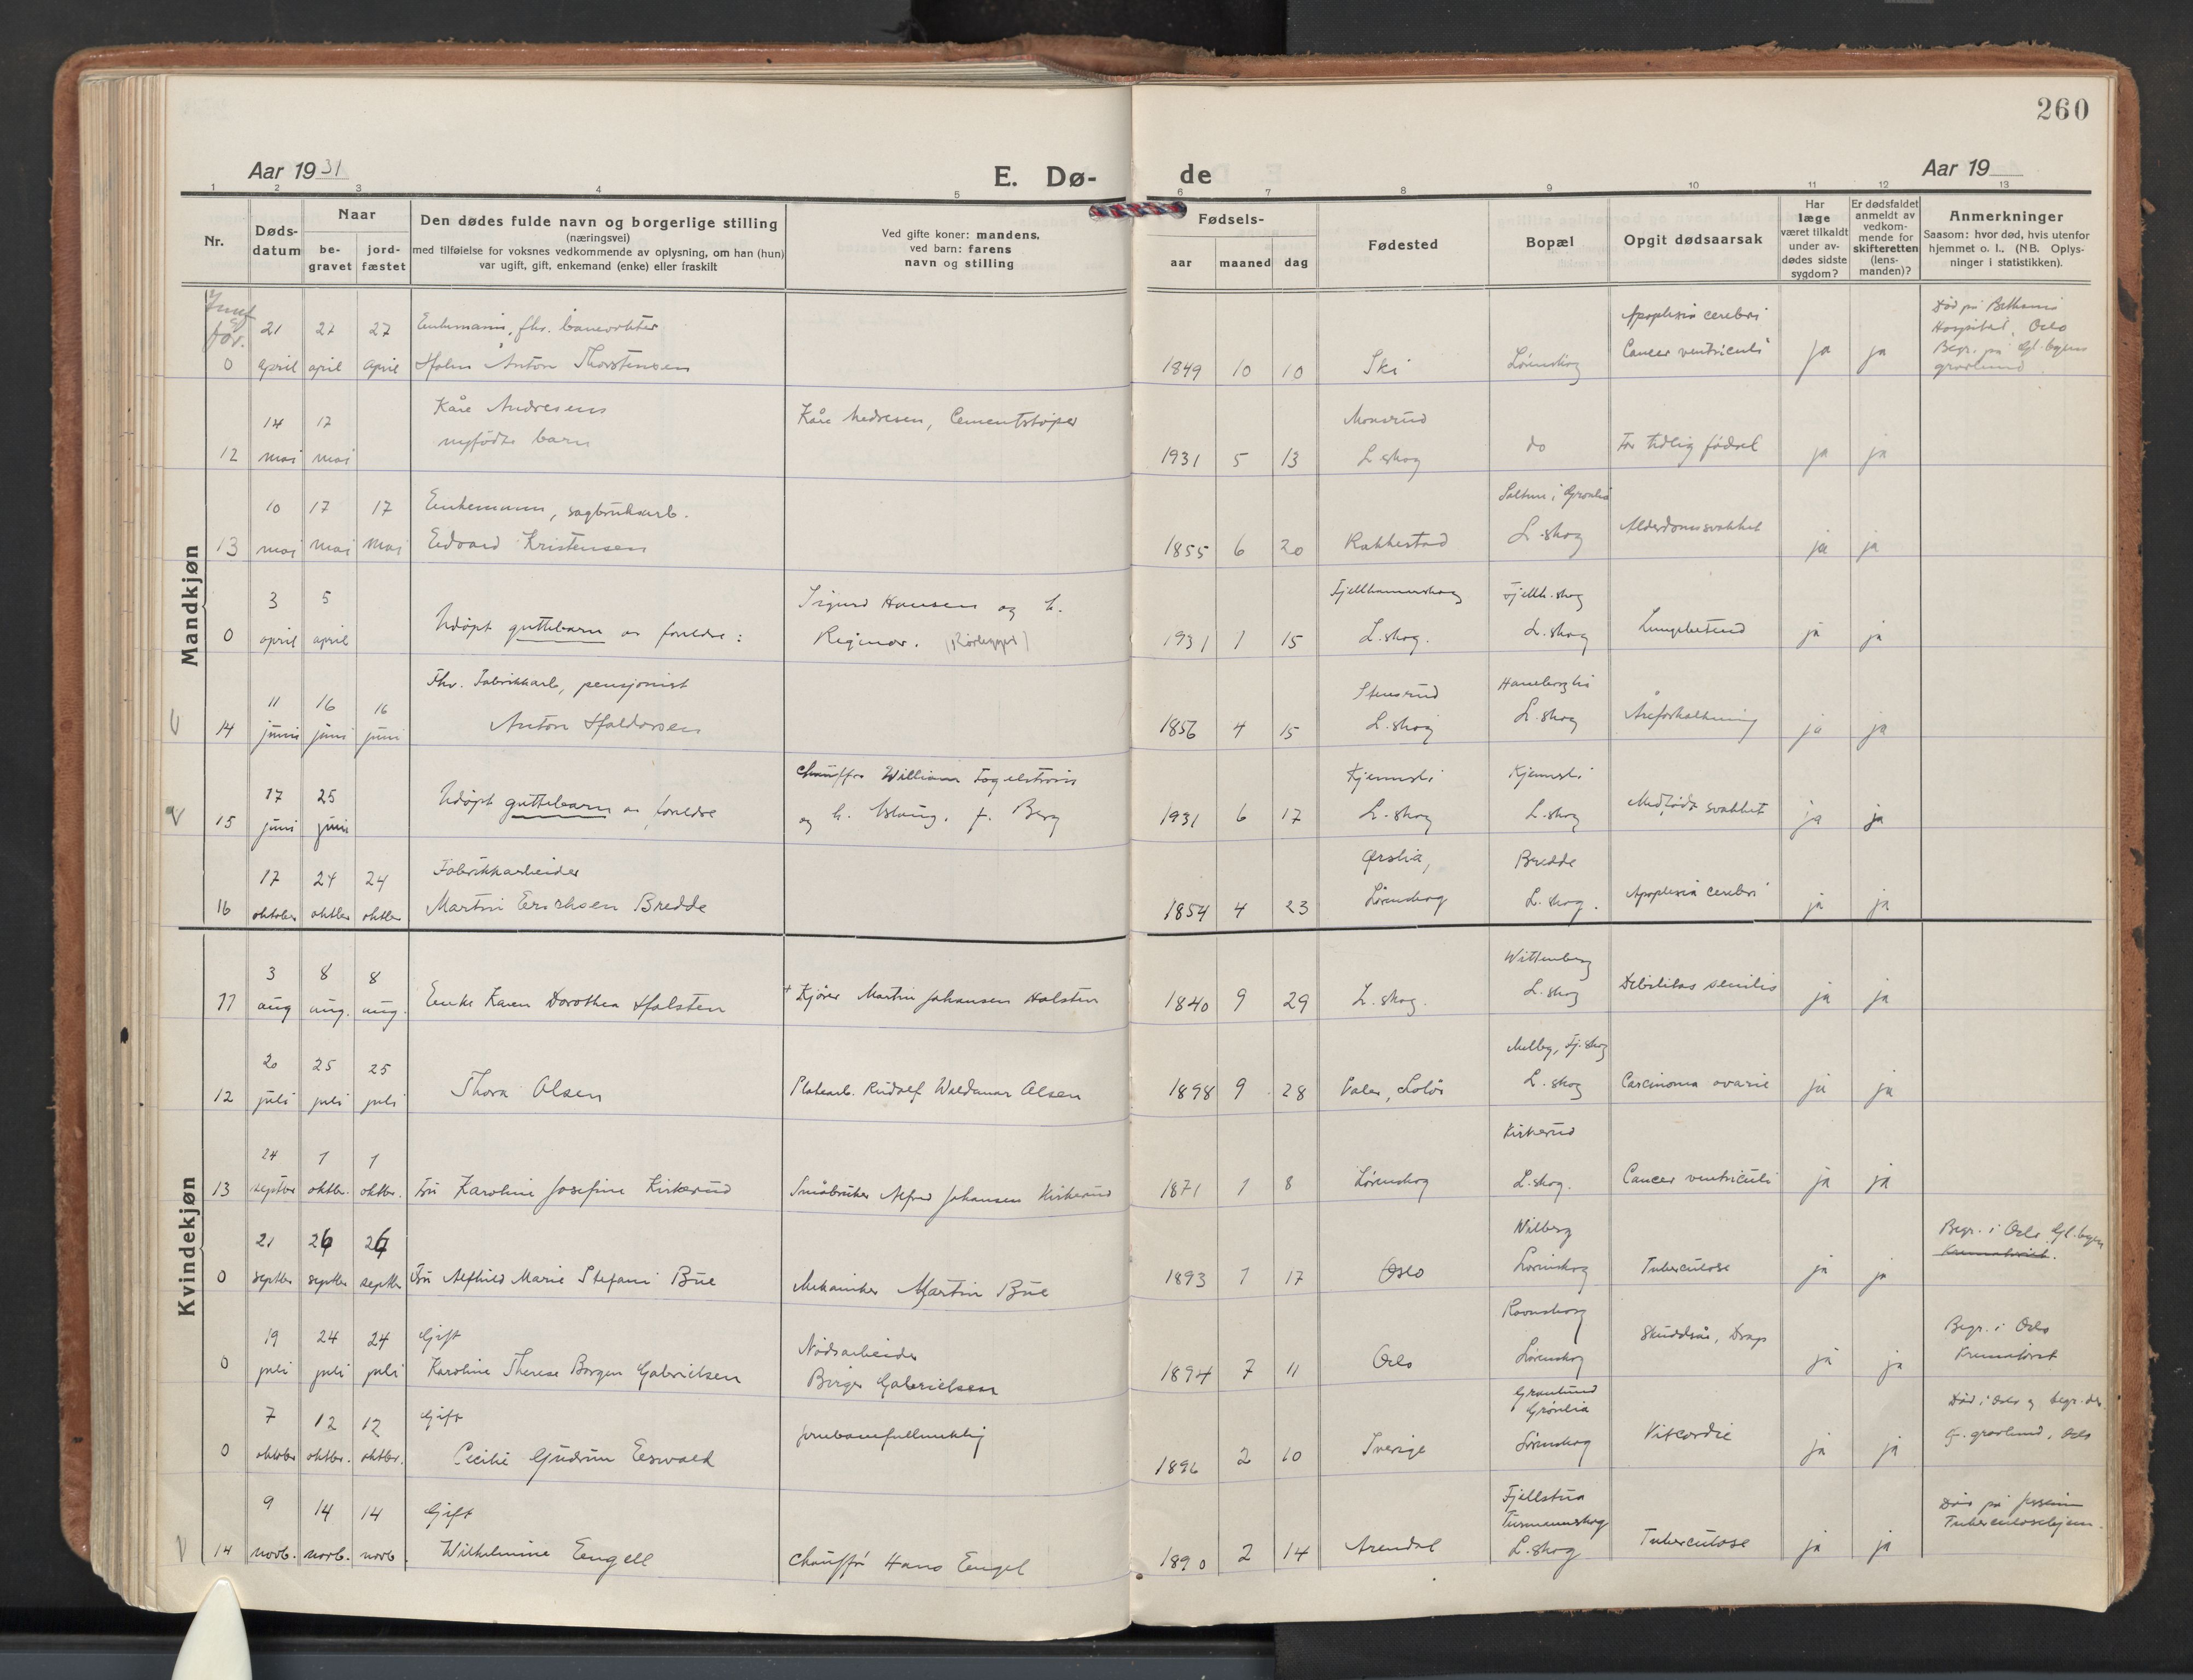 260
Aar 1931
E. Dø-
de
Aar 19
1 2 3 4 5 6 7 8 9 10 11 12 13
Nr.
Døds-
datum
Naar
be-
gravet
jord-
fæstet
Den dødes fulde navn og borgerlige stilling
(næringsvei)
med tilføielse for voksnes vedkommende av oplysning, om han (hun)
var ugift, gift, enkemand (enke) eller fraskilt
Ved gifte koner: mandens,
ved barn: farens
navn og stilling
Fødsels-
aar maaned dag
Fødested
Bopæl
Opgit dødsaarsak
Har
læge
været tilkaldt
under av-
dødes sidste
sygdom?
Er dødsfaldet
anmeldt av
vedkom-
mende for
skifteretten
(lens-
manden)?
Anmerkninger
Saasom: hvor død, hvis utenfor
hjemmet o. l.. (NB. Oplys-
ninger i statistikken).
Mandkjøn
21 27 27 Enkemann, fhv. banevokter
0 april april april Holm Anton Thorstensen
1849 10 10 Ski Lørenskog
Apoplexia cerebri
Cancer ventriculi ja ja
Død på Bethania
Hospital, Oslo
Begr. på Gl. byens
gravlund
14 17 Kåre Andresens Kåre Andresen, Cementstøper
12 mai mai nyfødte barn
1931 5 13 Monsrud
L.skog do For tidlig fødsel ja ja
10 17 17 Enkemann, sagbruksarb.
13 mai mai mai Edvard Kristensen
1855 6 20 Rakkestad
L.skog Alderdomssvakhet ja ja
3 5
0 april april Udøpt guttebarn av foreldre: Sigurd Hansen og h.
Regimor.
1931 1 15 Fjellhammerskog
L.skog. Fjellh.skog
L.skog Lungebetend ja ja
11 16 16 Fhv. Fabrikkarb, pensjonist
14 juni juni juni Anton Haldorsen
1856 4 15 Stensrud
L.skog Haneborgli
L.skog Åreforkalkning ja ja
17 25 Chauffør William Fogelstrøm
15 juni juni Udøpt guttebarn av foreldre og h. Aslaug, f. Berg
1931 6 17 Kjennsli
L.skog Kjennsli
L.skog Medfødt svakhet ja ja
17 24 24 Fabrikkarbeider
16 oktober oktbr oktbr Martin Erichsen Bredde
1854 4 23 Lørenskog Bredde
L.skog. Apoplexia cerebri ja ja
Kvindekjøn
3 8 8
11 aug aug. aug. Enke Karen Dorothea Halsten † Kjører Martin Johansen Halsten
1840 9 29 L.skog. Wittenberg
L.skog Debilitas senilis ja ja
20 25 25
12 juli juli juli Thora Olsen Platearb. Rudolf Waldemar Olsen
1898 9 28 Våler, Solør Melby, Fj.skog
L.skog Carcinoma ovarie ja ja
24 1 1
13 septbr oktbr. oktbr. Fru Karoline Josefine Kirkerud Småbruker Alfred Johansen Kirkerud
1871 1 8 Lørenskog Kirkerud
L.skog. Cancer ventriculi ja ja
21 26 26
0 septbr septbr septbr Fru Alfhild Marie Stefani Bue Mekaniker Martin Bue
1893 1 17 Oslo Wilberg
Lørenskog Tuberculose ja ja
Begr. i Oslo, Gl. byen
Krematoriet.
19 24 24 Gift Nødsarbeider
0 juli juli juli Karoline Therese Borgen Gabrielsen Birger Gabrielsen
1894 7 11 Oslo Ravnsborg
Lørenskog Skuddsår, Drap ja ja
Begr. i Oslo
Krematoriet
7 12 12 Gift
0 oktober oktbr. oktbr. Cecilie Gudrun Eswald
1896 2 10 Sverige Granlund
Grønlia
Lørenskog Vitcordie ja ja
Død i Oslo og begr. der.
gravlund, Oslo
9 14 14 Gift
14 novb. novb. novb. Wilhelmine Engell Chauffør Hans Engel
1890 2 14 Arendal Fjellstua
L.skog Tuberculose ja ja
Død på Jessheim
Tuberculosehjem.